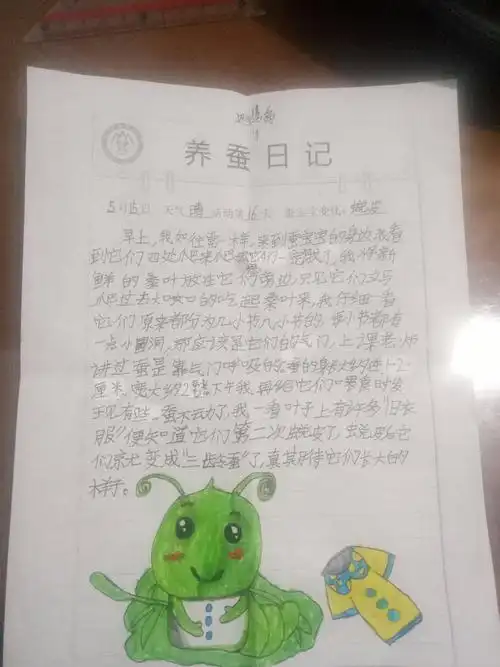 养蚕日记
5月15日 天气 晴 活动第 16 天 蚕宝宝变化: 蜕皮
早上,我如往常一样,来到蚕宝宝的身边,我看
到它们四处爬来爬 它们一定 了,我将新
鲜的桑叶放在它们旁边,只见它们立马
爬过去大口大口的吃起桑叶来,我仔细一看
它们原来都分为几小节几小节的,每小节都有
一点小圆洞,那应该是它们的气门,上课老师
讲过蚕是靠气门呼吸的,蚕的身体大约在1-2
厘米,变大约2 下午我再给它们喂食时发
现有些蚕不动了,我一看叶子上有许多“旧衣
服”便知道它们第二次蜕皮了,蜕 它
们就变成“三龄蚕”了,真期待它们长大的
样子。